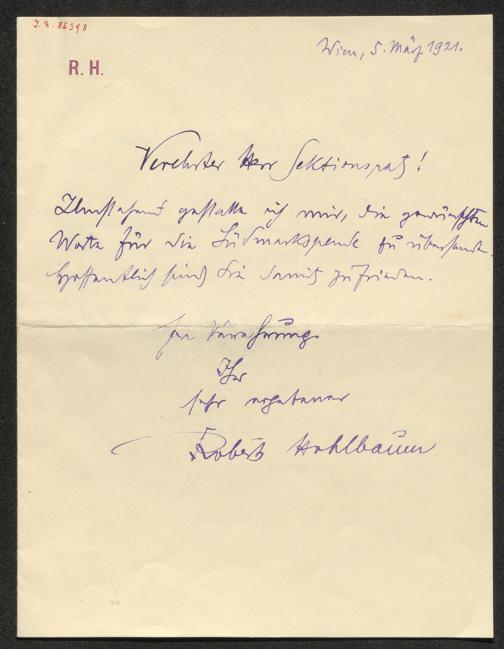 J.N. 85398
Wien, 5. März 1921.
R. H.
Verehrter Herr Sektionsrat!
Umstehend gestatte ich mir, die gewünschten
Worte für die Südmarkspende zu übersenden.
Hoffentlich sind Sie damit zufrieden.
In Verehrung
Ihr
sehr ergebener
Robert Hohlbaum